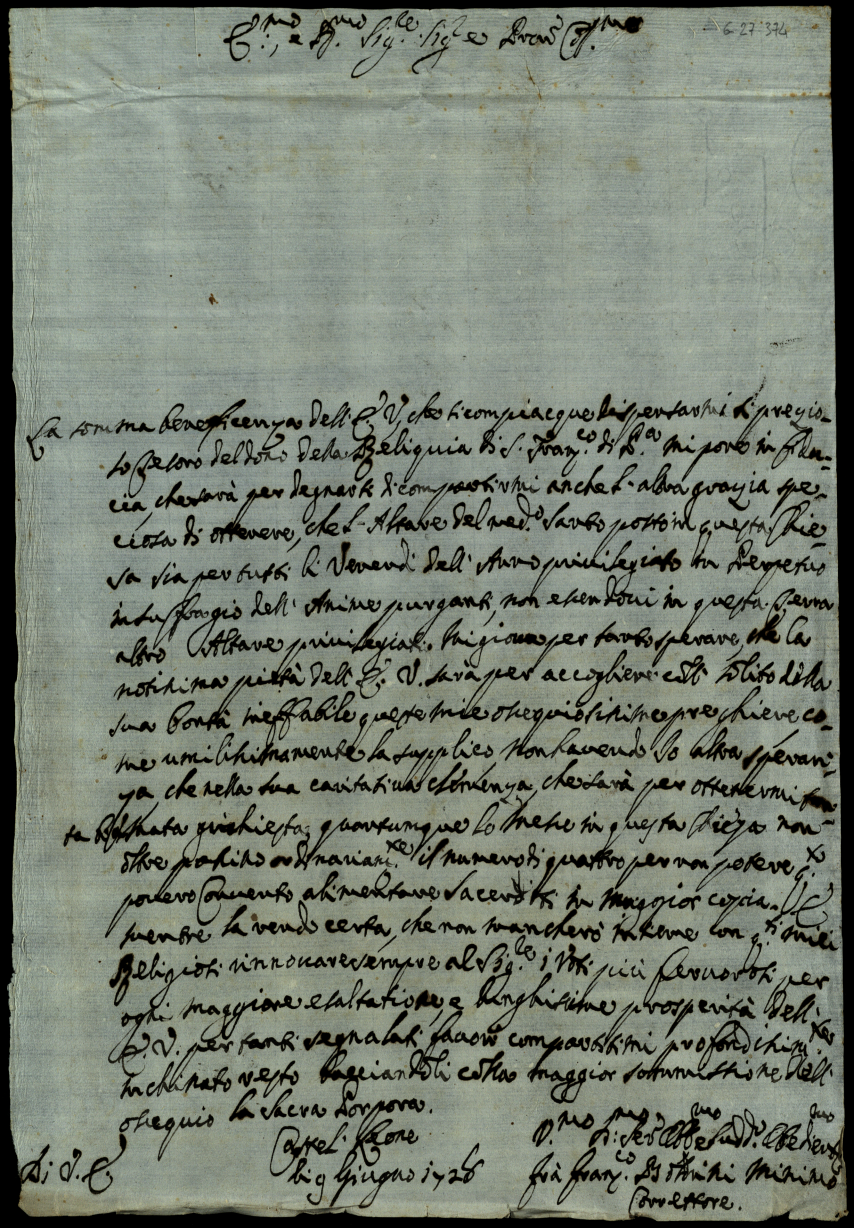 E.mo, e R.mo Sig.re Sig.re e Pron Col.mo
6-27-374
La somma beneficenza dell' E. V., che si compiacque dispensarmi il prezio-
so Tesoro del dono della Reliquia di S. Franc.co di P.a mi pone in fidu-
cia, che sarà per degnarsi di compartirmi anche l'altra grazia spe-
ciosa di ottenere, che l'Altare del med.o Santo posto in questa Chie-
sa sia per tutti li Venerdi dell' Anno privilegiato in Perpetuo
in suffragio dell' Anime purganti, non essendovi in questa Terra
altro Altare privilegiat. Mi giova per tanto sperare, che la
notissima pietà dell' E. V. sarà per accogliere coll' solito della
sua bontà ineffabile queste mie ossequiosissime preghiere co-
me umilissimamente la supplico, non havendo Io altra speran-
za, che nella sua caritativa clemenza, che sarà per ottenermi
ta bramata richiesta, quantunque le Messe in questa Chieza non
oltre passino ordinariam.te il numero di quattro per non potere q.to
povero Convento alimentare Sacerdoti in maggior copia. E
mentre la rendo certa, che non mancherò insieme con q.ti miei
Religiosi rinnovare sempre al Sig.re i Voti più fervorosi per
ogni maggiore esaltatione, e lunghissime prosperità dell'
E. V. per tanti segnalati favori compartitimi profondissim.te
inchinato resto bacciandoli colla maggior sommissione dell'
ossequio la Sacra Porpora.
Di V. E.
Castel Leone
li 9 Giugno 1726
V.mo D.mo Ser. Obb.mo Sudd.o Obbedient.mo
frà Franc.co Minimo
Correttore.